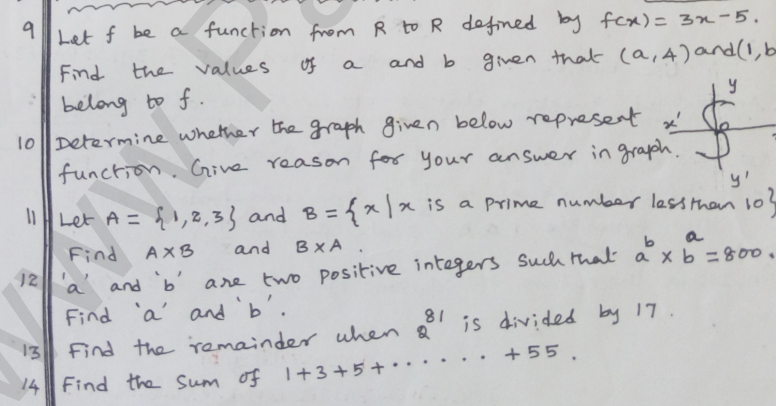 9 Let f be a function from R to R defined by f(x) = 3x - 5.
Find the values of a and b given that (a, 4) and (1, b
belong to f.
10 Determine whether the graph given below represent
function. Give reason for your answer in graph.
x' y
y'
11 Let A = {1, 2, 3} and B = {x | x is a prime number less than 10}
Find A×B and B×A.
12 'a' and 'b' are two positive integers such that a^b × b^a = 800.
Find 'a' and 'b'.
13 Find the remainder when 2^81 is divided by 17.
14 Find the sum of 1+3+5+ . . . . . . + 55.
www.Pa